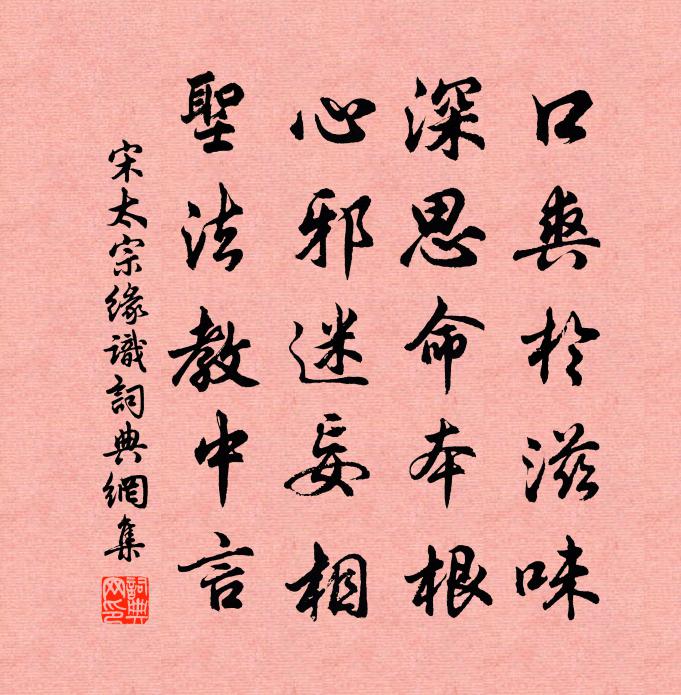 口爽於滋味
深思命本根
心邪迷妄相
聖法教中言
宋太宗緣識詞典網集
詞典網印